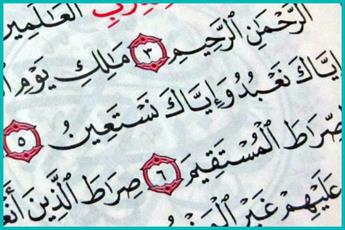 رَبِّ ٱلْعَالَمِين
ٱلرَّحْمَٰنِ ٱلرَّحِيمِ ٣ مَالِكِ يَوْمِ
إِيَّاكَ نَعْبُدُ وَإِيَّاكَ نَسْتَعِينُ ٥
صِّرَاطَ ٱلْمُسْتَقِيمَ ٦ صِرَاطَ ٱلَّذِينَ أَنْعَ
عَلَيْهِمْ غَيْرِ